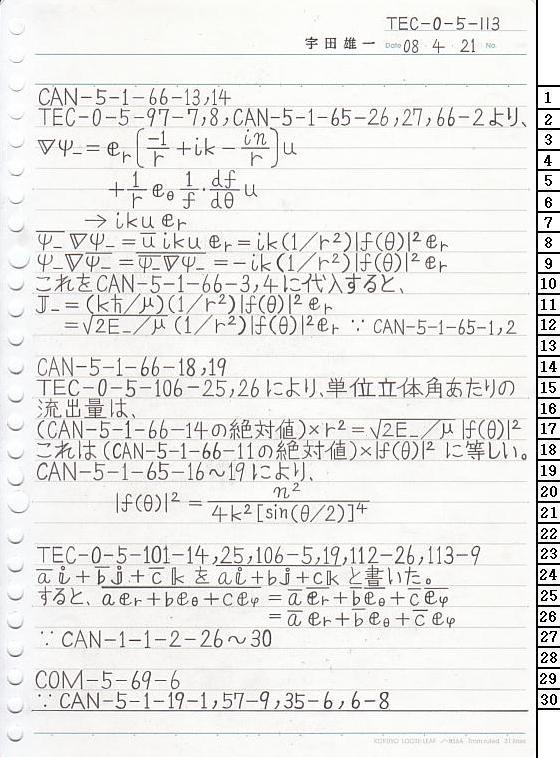 TEC-0-5-113
宇田雄一 Date 08・4・21 No.
CAN-5-1-66-13,14
TEC-0-5-97-7,8,CAN-5-1-65-26,27,66-2より、
∇Ψ₋=𝕖r[-1/r+ik-in/r]u
+1/r 𝕖θ 1/f・df/dθ u
→iku𝕖r
Ψ̅₋∇Ψ₋=u̅iku𝕖r=ik(1/r²)|f(θ)|²𝕖r
Ψ₋∇Ψ̅₋=\overline{Ψ̅₋∇Ψ₋}=-ik(1/r²)|f(θ)|²𝕖r
これをCAN-5-1-66-3,4に代入すると、
J₋=(kħ/μ)(1/r²)|f(θ)|²𝕖r
=√(2E₋/μ)(1/r²)|f(θ)|²𝕖r ∵ CAN-5-1-65-1,2
CAN-5-1-66-18,19
TEC-0-5-106-25,26により、単位立体角あたりの
流出量は、
(CAN-5-1-66-14の絶対値)×r²=√(2E₋/μ)|f(θ)|²
これは(CAN-5-1-66-11の絶対値)×|f(θ)|²に等しい。
CAN-5-1-65-16~19により、
|f(θ)|²=n²/4k²[sin(θ/2)]⁴
TEC-0-5-101-14,25,106-5,19,112-26,113-9
a̅𝕚+b̅𝕛+c̅𝕜を\overline{a𝕚+b𝕛+c𝕜}と書いた。
すると、\overline{a𝕖r+b𝕖θ+c𝕖φ}=\overline{a𝕖r}+\overline{b𝕖θ}+\overline{c𝕖φ}
=a̅𝕖r+b̅𝕖θ+c̅𝕖φ
∵ CAN-1-1-2-26~30
COM-5-69-6
∵ CAN-5-1-19-1,57-9,35-6,6-8
1
2
3
4
5
6
7
8
9
10
11
12
13
14
15
16
17
18
19
20
21
22
23
24
25
26
27
28
29
30